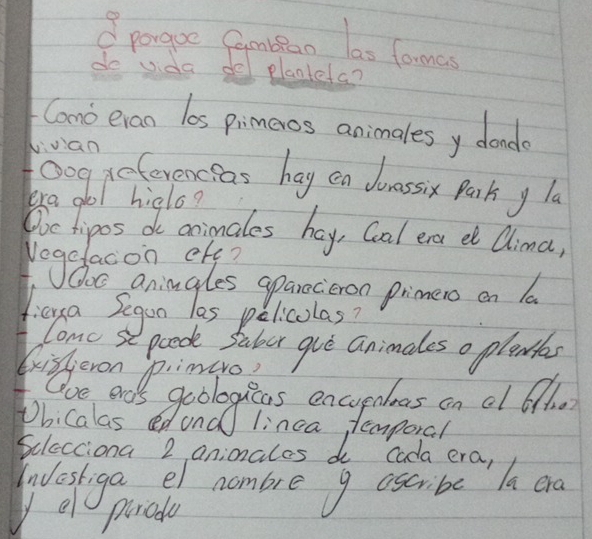 ¿porque Cambian las formas
de vida del planteta?
-Como eran los primeros animales y donde
vivian
-Que referencias hay en Jurassix Park y la
era del hielo?
Que tipos de animales hay, Cual era el Clima,
Vegetacion etc?
- Que animales aparecieron primero en la
tierra Segun las peliculas?
- Como se puede saber qué animales o plantas
Existieron primero?
- Que eras geologicas encuentras en el
Ubicalas en una linea temporal
Selecciona 2 animales de cada era,
investiga el nombre y escribe la era
y el periodo